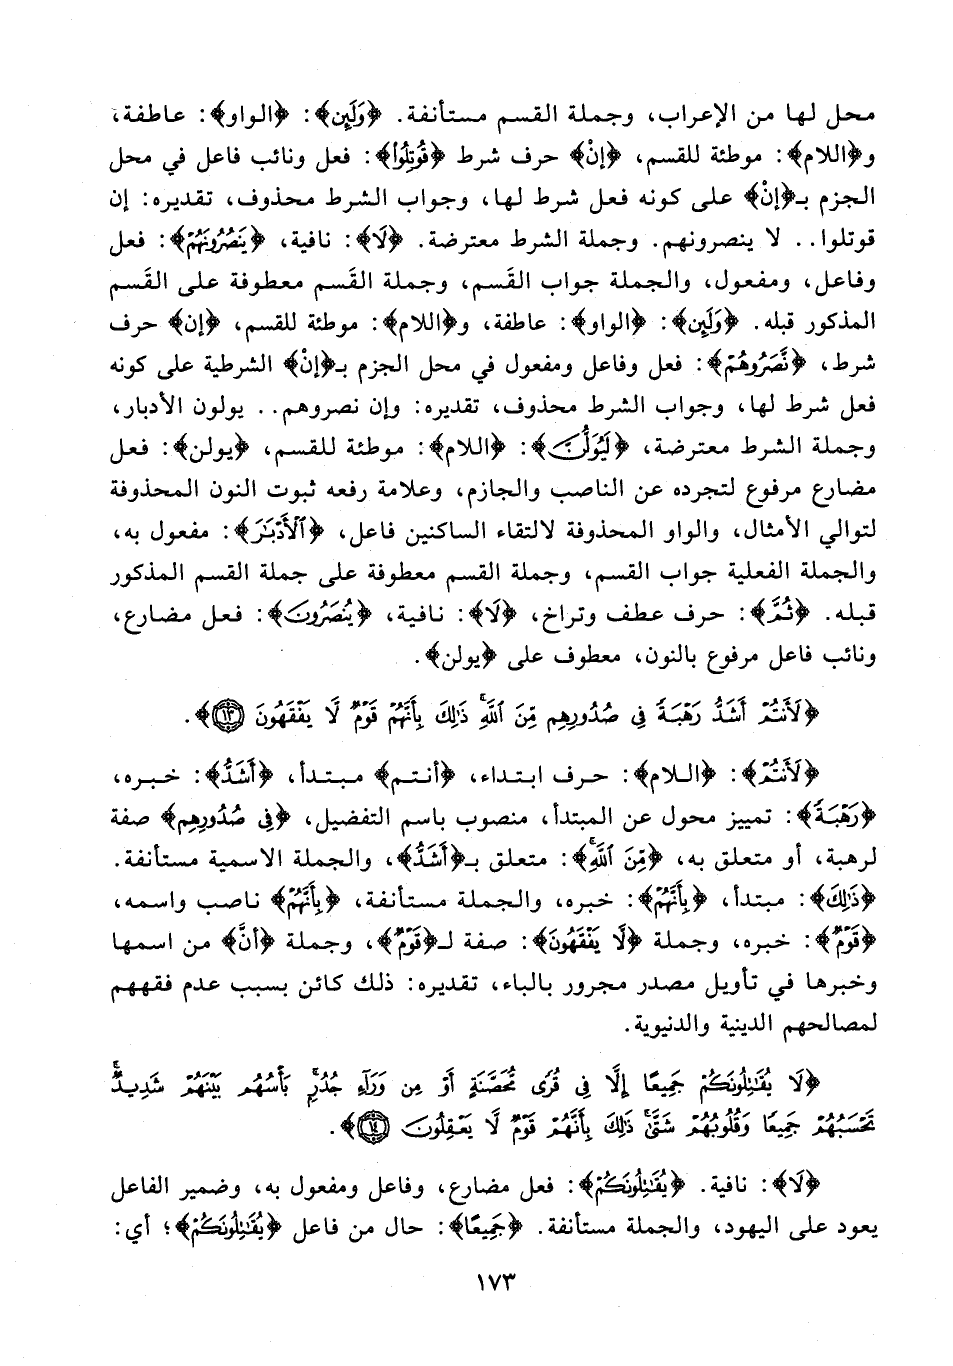 محل لها من الإعراب، وجملة القسم مستأنفة. ﴿وَلَئِن﴾: ﴿الواو﴾: عاطفة،
و﴿اللام﴾: موطئة للقسم، ﴿إنْ﴾ حرف شرط ﴿قُوتِلُوا۟﴾: فعل ونائب فاعل في محل
الجزم بـ﴿إنْ﴾ على كونه فعل شرط لها، وجواب الشرط محذوف، تقديره: إن
قوتلوا.. لا ينصرونهم. وجملة الشرط معترضة. ﴿لَا﴾: نافية، ﴿يَنصُرُونَهُمْ﴾: فعل
وفاعل، ومفعول، والجملة جواب القَسم، وجملة القَسم معطوفة على القَسم
المذكور قبله. ﴿وَلَئِن﴾: ﴿الواو﴾: عاطفة، و﴿اللام﴾: موطئة للقسم، ﴿إن﴾ حرف
شرط، ﴿نَّصَرُوهُمْ﴾: فعل وفاعل ومفعول في محل الجزم بـ﴿إنْ﴾ الشرطية على كونه
فعل شرط لها، وجواب الشرط محذوف، تقديره: وإن نصروهم.. يولون الأدبار،
وجملة الشرط معترضة، ﴿لَيُوَلُّنَّ﴾: ﴿اللام﴾: موطئة للقسم، ﴿يولن﴾: فعل
مضارع مرفوع لتجرده عن الناصب والجازم، وعلامة رفعه ثبوت النون المحذوفة
لتوالي الأمثال، والواو المحذوفة لالتقاء الساكنين فاعل، ﴿ٱلْأَدْبَٰرَ﴾: مفعول به،
والجملة الفعلية جواب القسم، وجملة القسم معطوفة على جملة القسم المذكور
قبله. ﴿ثُمَّ﴾: حرف عطف وتراخ، ﴿لَا﴾: نافية، ﴿يُنصَرُونَ﴾: فعل مضارع،
ونائب فاعل مرفوع بالنون، معطوف على ﴿يولن﴾.
﴿لَأَنتُمْ أَشَدُّ رَهْبَةً فِى صُدُورِهِم مِّنَ ٱللَّهِ ۚ ذَٰلِكَ بِأَنَّهُمْ قَوْمٌ لَّا يَفْقَهُونَ ١٣﴾.
﴿لَأَنتُمْ﴾: ﴿اللام﴾: حرف ابتداء، ﴿أنتم﴾ مبتدأ، ﴿أَشَدُّ﴾: خبره،
﴿رَهْبَةً﴾: تمييز محول عن المبتدأ، منصوب باسم التفضيل، ﴿فِى صُدُورِهِم﴾ صفة
لرهبة، أو متعلق به، ﴿مِّنَ ٱللَّهِ ۚ﴾: متعلق بـ﴿أَشَدُّ﴾، والجملة الاسمية مستأنفة.
﴿ذَٰلِكَ﴾: مبتدأ، ﴿بِأَنَّهُمْ﴾: خبره، والجملة مستأنفة، ﴿بِأَنَّهُمْ﴾ ناصب واسمه،
﴿قَوْمٌ﴾: خبره، وجملة ﴿لَّا يَفْقَهُونَ﴾: صفة لـ﴿قَوْمٌ﴾، وجملة ﴿أنَّ﴾ من اسمها
وخبرها في تأويل مصدر مجرور بالباء، تقديره: ذلك كائن بسبب عدم فقههم
لمصالحهم الدينية والدنيوية.
﴿لَا يُقَٰتِلُونَكُمْ جَمِيعًا إِلَّا فِى قُرًى مُّحَصَّنَةٍ أَوْ مِن وَرَآءِ جُدُرٍۭ ۚ بَأْسُهُم بَيْنَهُمْ شَدِيدٌ ۚ
تَحْسَبُهُمْ جَمِيعًا وَقُلُوبُهُمْ شَتَّىٰ ۚ ذَٰلِكَ بِأَنَّهُمْ قَوْمٌ لَّا يَعْقِلُونَ ١٤﴾.
﴿لَا﴾: نافية. ﴿يُقَٰتِلُونَكُمْ﴾: فعل مضارع، وفاعل ومفعول به، وضمير الفاعل
يعود على اليهود، والجملة مستأنفة. ﴿جَمِيعًا﴾: حال من فاعل ﴿يُقَٰتِلُونَكُمْ﴾؛ أي:
١٧٣